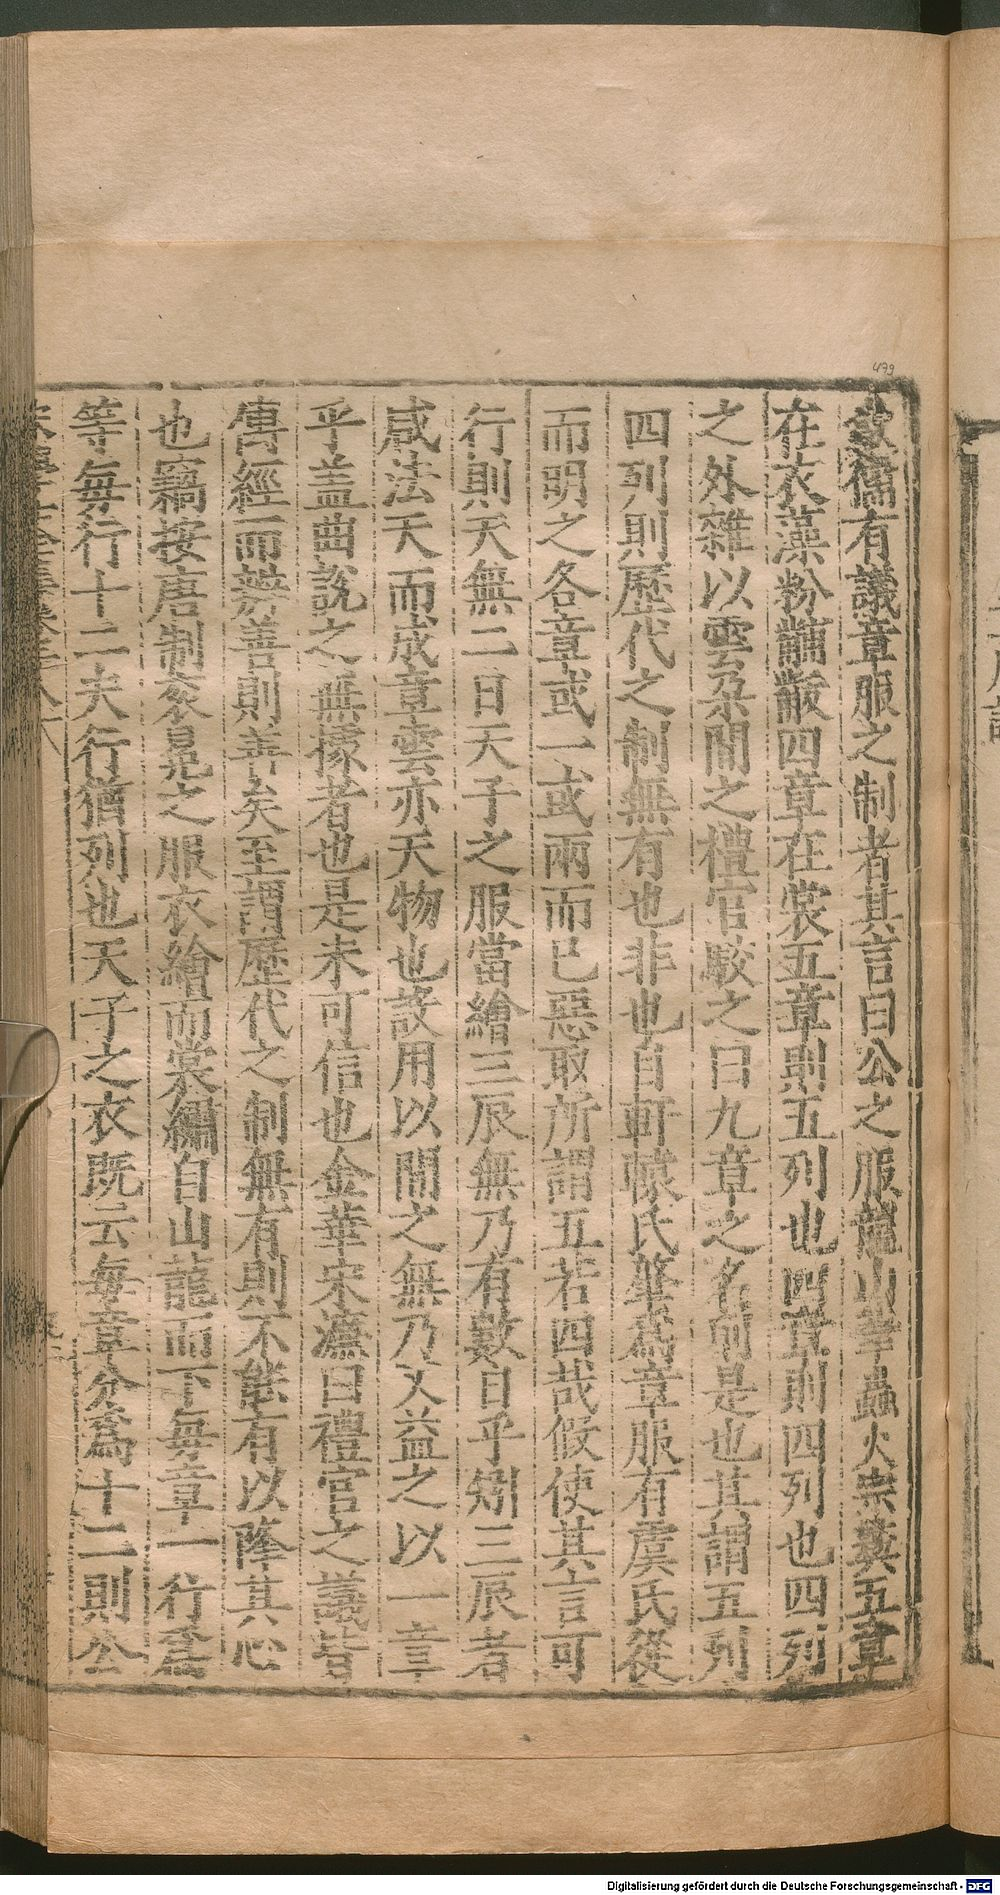 儒有議章服之制者其言曰公之服龍山華蟲火宗彝五章
在衣藻粉黼黻四章在裳五章則五列也四章則四列也四列
之外雜以雲朶間之禮官駁之曰九章之名制是也其謂五列
四列則歷代之制無有也非也自軒轅氏肇爲章服有虞氏從
而明之各章或一或兩而已惡取所謂五若四哉假使其言可
行則天無二日天子之服當繪三辰無乃有數日乎矧三辰者
咸法天而成章雲亦天物也設用以間之無乃又益之以一章
乎盖曲說之無據者也是未可信也金華宋濂曰禮官之議昔
傳經而辨善則善矣至謂歷代之制無有則不能有以降其心
也竊按唐制衮冕之服衣繪而裳繡自山龍而下每章一行爲
等每行十二夫行猶列也天子之衣既云每章分爲十二則公
479
Digitalisierung gefördert durch die Deutsche Forschungsgemeinschaft - DFG